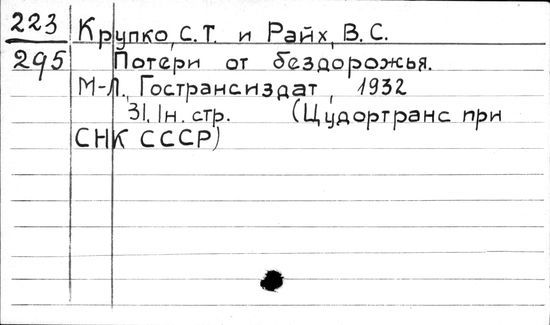 223 Крупко, С.Т. и Райх, В.С.
295 Потери от бездорожья.
М-Л., Гострансиздат, 1932
31. Iн. стр. (Цудортранс при
СНК СССР)